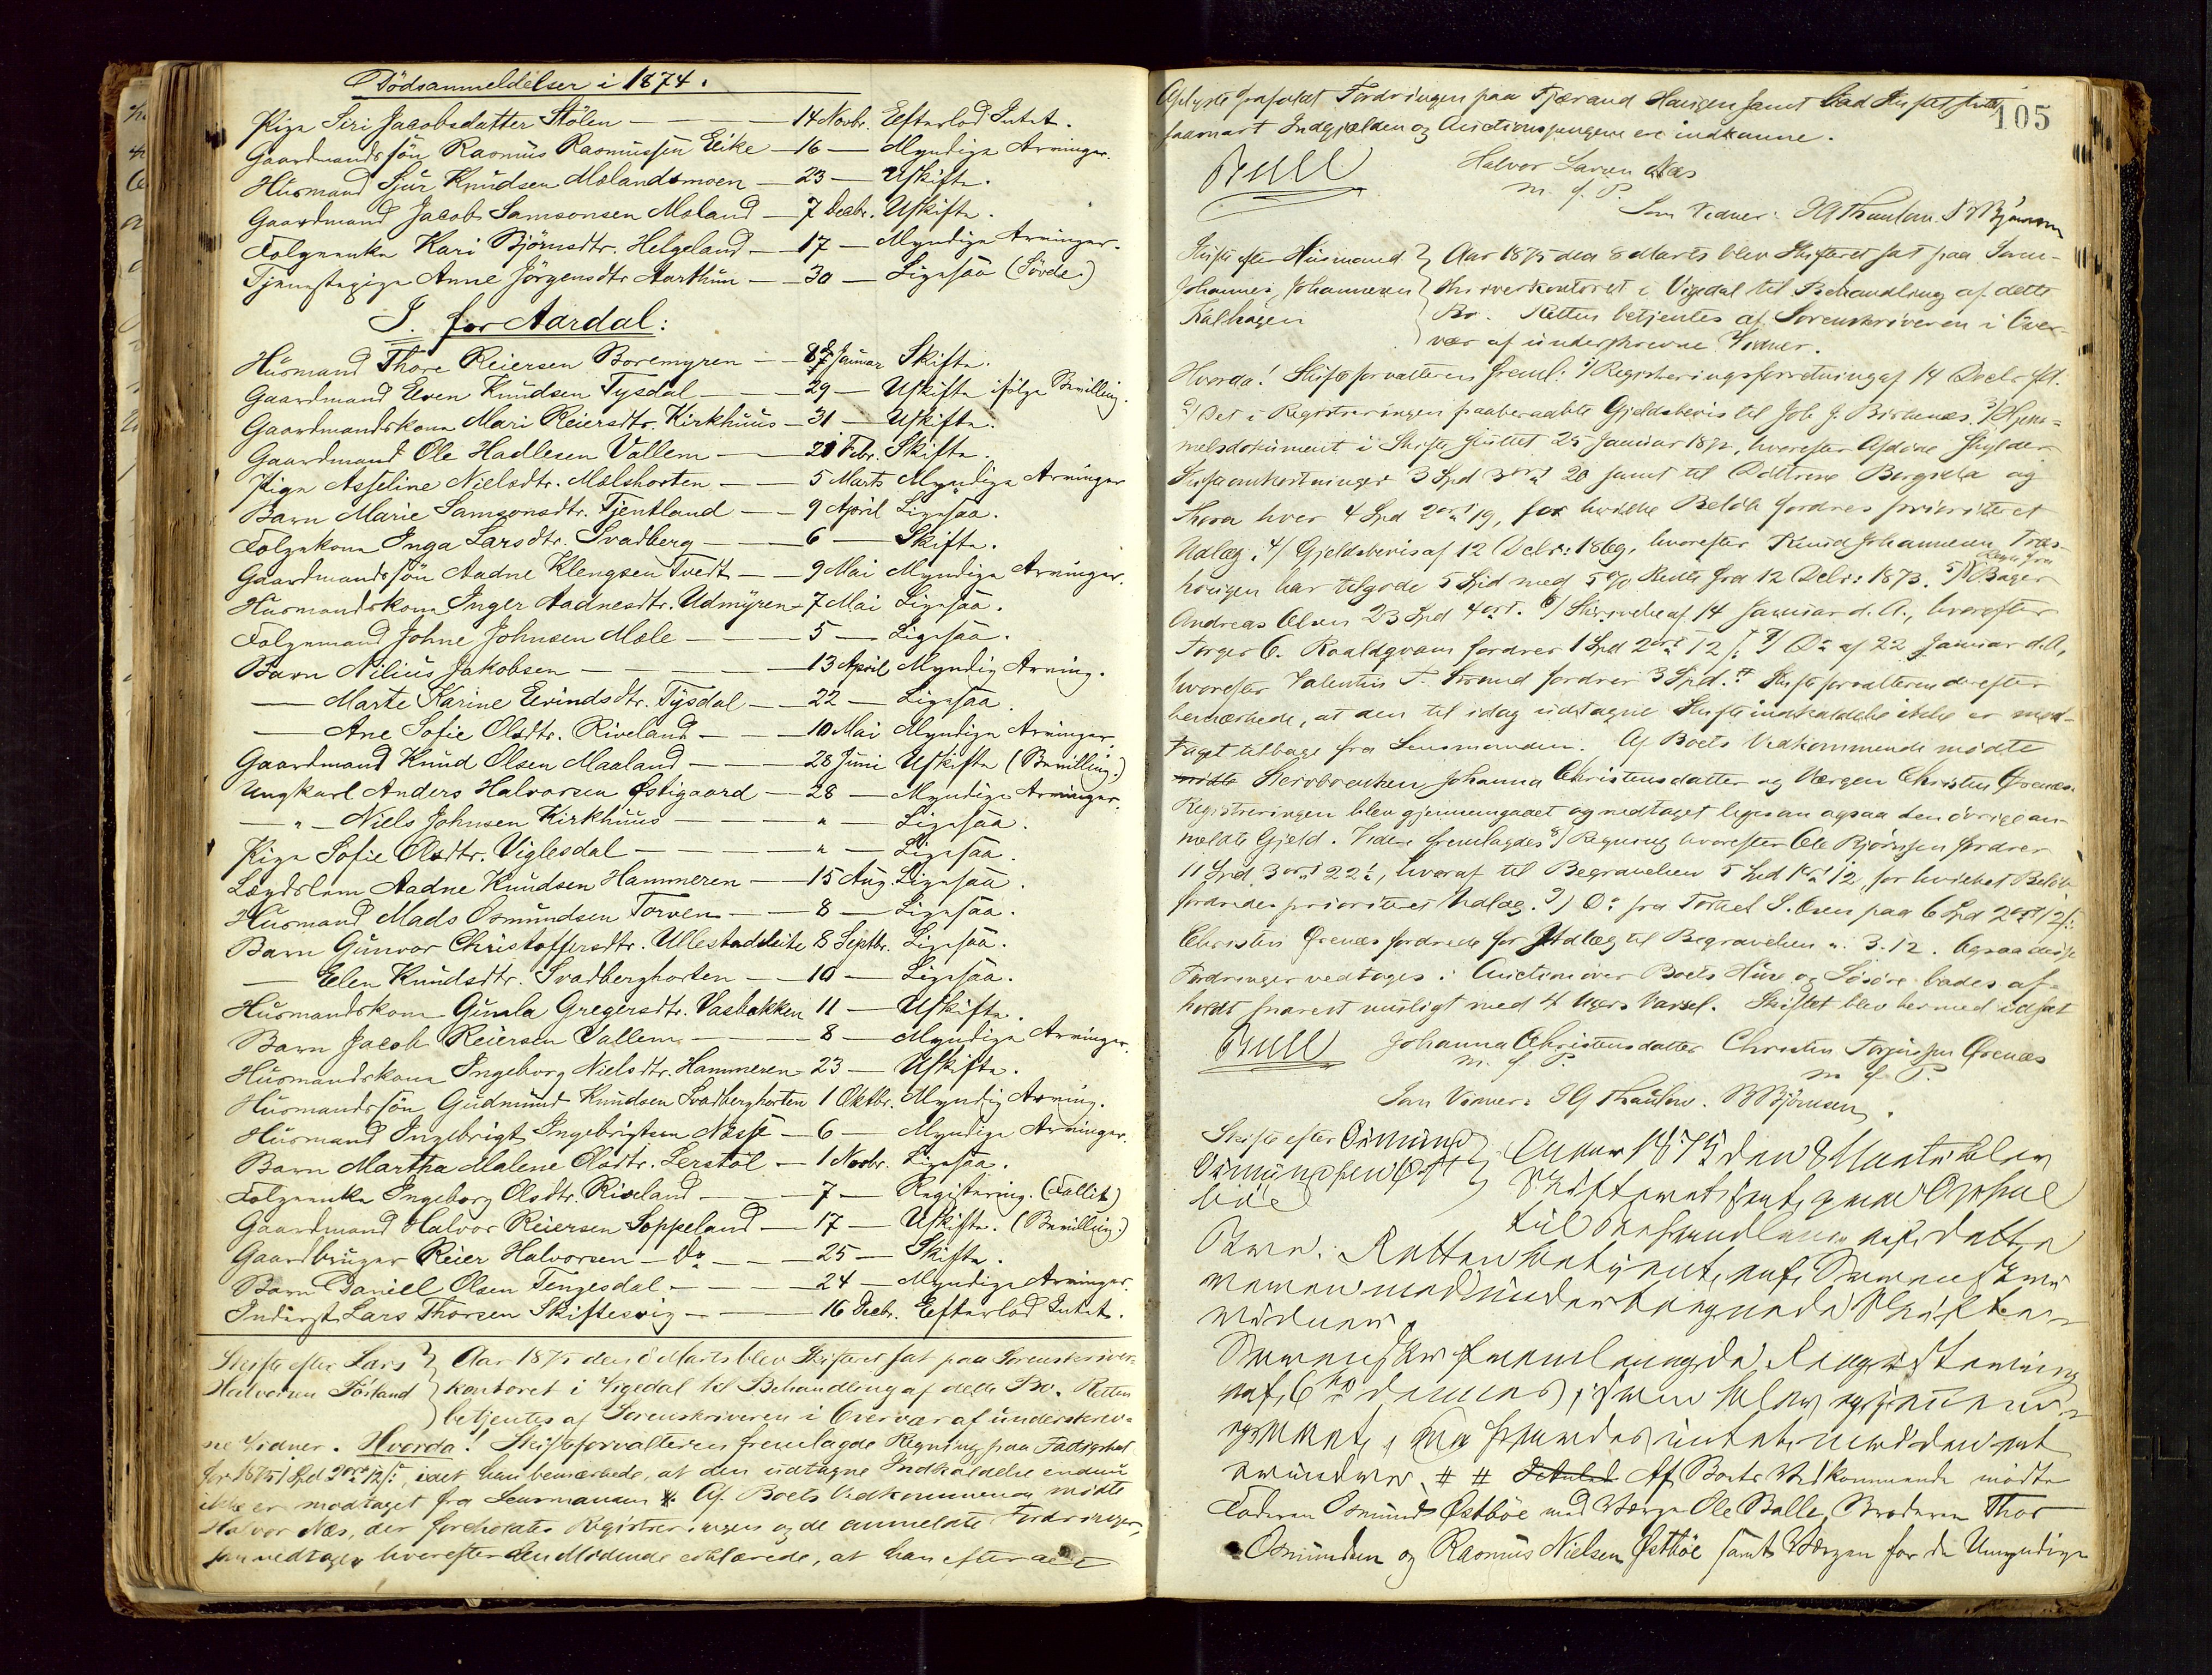 Dödsanmeldelser i 1874.
Pige Siri Jacobsdatter Stölen — 14 Novbr. Efterlod Intet.
Gaardmandssön Rasmus Rasmussen Eike — 16 — Myndige Arvinger.
Husmand Sjur Knudsen Mælandsmoen — 23 — Uskifte.
Gaardmand Jacob Samsonsen Mæland — 7 Decbr. Uskifte.
Folgeenke Kari Björnsdtr. Helgeland — 17 — Myndige Arvinger.
Tjenestepige Anne Jörgensdtr Aarthun — 30 — Ligesaa (Sövde)
I. for Aardal:
Husmand Thore Reiersen Boremyren — 8 Januar Skifte.
Gaardmand Elven Knudsen Tysdal — 29 — Uskifte ifölge Bevilling.
Gaardmandskone Mari Reiersdtr. Kirkhuus — 31 — Uskifte.
Gaardmand Ole Hadlesen Vallem — 20 Febr. Skifte.
Pige Asseline Nielsdtr. Mælshorten — 5 Marts Myndige Arvinger
Barn Marie Samsonsdtr. Tjentland — 9 April Ligesaa.
Folgekone Inga Larsdtr. Svadberg — 6 — Skifte.
Gaardmandssön Aadne Klengsen Tvedt — 9 Mai Myndige Arvinger.
Husmandskone Inger Aadnesdtr. Udmyren — 7 Mai Ligesaa.
Folgemand Johne Johnsen Mæle — 5 — Ligesaa.
Barn Nilius Jakobsen — 13 April Myndig Arving.
— Marte Karine Eivindsdtr. Tysdal — 22 — Ligesaa.
— Ane Sofie Olsdtr. Riveland — 10 Mai Myndige Arvinger.
Gaardmand Knud Olsen Maaland — 28 Juni Uskifte (Bevilling.)
Ungkarl Anders Halvorsen Østigaard — 28 — Myndige Arvinger.
— " — Niels Johnsen Kirkhuus — " — Ligesaa.
Pige Sofie Olsdtr. Viglesdal — " — Ligesaa.
Lægdslem Aadne Knudsen Hammeren — 15 Aug. Ligesaa.
Husmand Mads Osmundsen Torven — 8 — Ligesaa.
Barn Gunvor Christoffersdtr. Ullestadleite 8 Septbr. Ligesaa.
— Elen Knudsdtr. Svadberghorten — 10 — Ligesaa.
Husmandskone Gunla Gregersdtr. Vasbakken 11 — Uskifte.
Barn Jacob Reiersen Vallem — 8 — Myndige Arvinger.
Husmandskone Ingeborg Nielsdtr. Hammeren 23 — Uskifte.
Husmandssön Gudmund Knudsen Svadberghorten 1 Oktbr. Myndig Arving.
Husmand Ingebrigt Ingebrigtsen Nessе — 6 — Myndige Arvinger.
Barn Martha Malene Olsdtr. Lerstöl — 1 Novbr. Ligesaa.
Folgeenke Ingeborg Olsdtr. Riveland — 7 — Registering. (Fallit)
Gaardmand Halvor Reiersen Soppeland — 17 — Uskifte. (Bevilling)
Gaardbruger Reier Halvorsen — Do — 25 — Skifte.
Barn Daniell Olsen Tengesdal — 24 — Myndige Arvinger.
Inderst Lars Thorsen Skiftesvig — 16 Decbr. Efterlod Intet.
Skifte efter Lars Halvorsen } Aar 1875 den 8 Marts blev Skifteret sat paa Sorenskriver-
kontoret i Vigedal til Behandling af dette Bo. Retten
betjentes af Sorenskriveren i Overvær af underskrev-
ne Vidner. Hvorda! Skifteforvalteren fremlagde Regning paa
idet han bemærkede, at den udtagne Indkaldelse endnu
ikke er modtaget fra Lensmanden. Af Boets Vedkommende mödte
Halvor Næs, der foreholdtes Registreringen og de anmeldte Fordringer,
som vedtoges hvorefter den Mödende erklærede, at han efter
105
Fordringen paa Tjærand Haugen samt bad Skiftet sluttet
saasnart Indgjælden og Auctionspengene ere indkomne.
Bull Halvor Larsen Næs
m. f. P.
Som Vidner: Thaulow. Björnsen
Skifte efter Husmand } Aar 1875 den 8 Marts blev Skifteret sat paa Soren-
Johannes Johannesen } skriverkontoret i Vigedal til Behandling af dette
Kalhagen } Bo. Retten betjentes af Sorenskriveren i Over-
vær af underskrevne Vidner.
Hvorda! Skifteforvalteren freml: 1/ Registreringsforretning af 14 Decbr f.A.
2/ Det i Registreringen paaberaabte Gjeldsbevis til Joh. J. Birkenæs. 3/ Hjem-
melsdokument i Skifte sluttet 25 Januar 1872, hvorefter Afdöde skylder
3 Spd 3 ort 20 samt til Döttrene Bergitha og
Thora hver 4 Spd 2 ort 19, for hvilke Belöb fordres prioriteret
Udlæg. 4/ Gjeldsbevis af 12 Decbr: 1869, hvorefter Knud Johannesen
har tilgode 5 Spd med 5 % Rente fra 12 Decbr: 1873. 5/ Regn. fra Bager
Andreas Olsen 23 Spd 4 ort. 6/ Skrivelse af 14 Januar d.A., hvorefter
Torger C. Roaldqvam fordrer 1 Spd 2 ort 12 s. 7/ Do af 22 Januar d.A,
hvorefter Valentin T. Strand fordrer 3 Spd. Skifteforvalteren derefter
bemærkede, at den til idag udtagne Skifteindkaldelse ikke er mod-
taget tilbage fra Lensmanden. Af Boets Vedkommende mödte
Stervboenken Johanna Christensdatter og Værgen Christen Ørenæs.
Registreringen blev gjennemgaaet og vedtaget ligesom ogsaa den övrige an-
meldte Gjeld. Videre fremlagdes 8/ Regning hvorefter Ole Björnsen fordrer
11 Spd 3 ort 22 s, hvoraf til Begravelsen 5 Spd 1 ort 12, for hvilket Belöb
fordredes prioriteret Udlæg. 9/ Do fra Torkel S. Osen paa 6 Spd 2 ort 12 s.
Christen Ørenæs fordrede for Udlæg til Begravelsen " 3. 12. Ogsaa disse
Fordringer vedtoges. Auction over Boets Huse og Lösöre bades af-
holdt snarest muligt med 4 Ugers Varsel. Skiftet blev hermed udsat
Bull Johanna Christensdatter Christen Torgussen Ørenæs
m. f. P. m f. P.
Som Vidner: Thaulow. Björnsen.
Skifte efter Osmund } Anner 1875 den 8 Marts blev
Osmundsen Øst- } Skifteret sat paa Opsal
böe til Behandling af dette
Bo. Retten betjent af Sorenskri-
veren med undertegnede Skifte-
vidner.
Sorenskr fremlagde Registrering
af 6te dennes, som blev gjennem-
gaaet,
Af Boets Vedkommende mödte
Faderen Osmund Østböe med Værge Ole Balle, Broderen Thor
Osmundsen og Rasmus Nielsen Østböe samt Værgen for de Umyndige